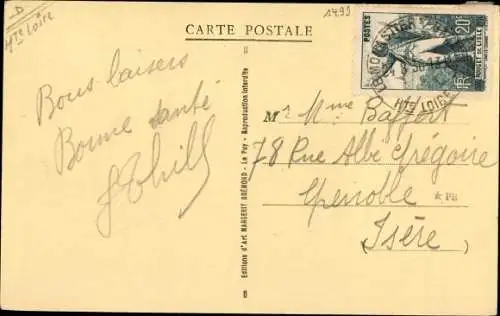 D
Hte Loire
1499
CARTE POSTALE
POSTES
20
ROUGET DE LISLE
Hte LOIRE
Bons baisers
Bonne santé
Mr
Mme Baffort
78 Rue Abbé Grégoire
Grenoble
★ PB
Isère
Editions d'Art MARGERIT BRÉMOND - Le Puy - Reproduction interdite